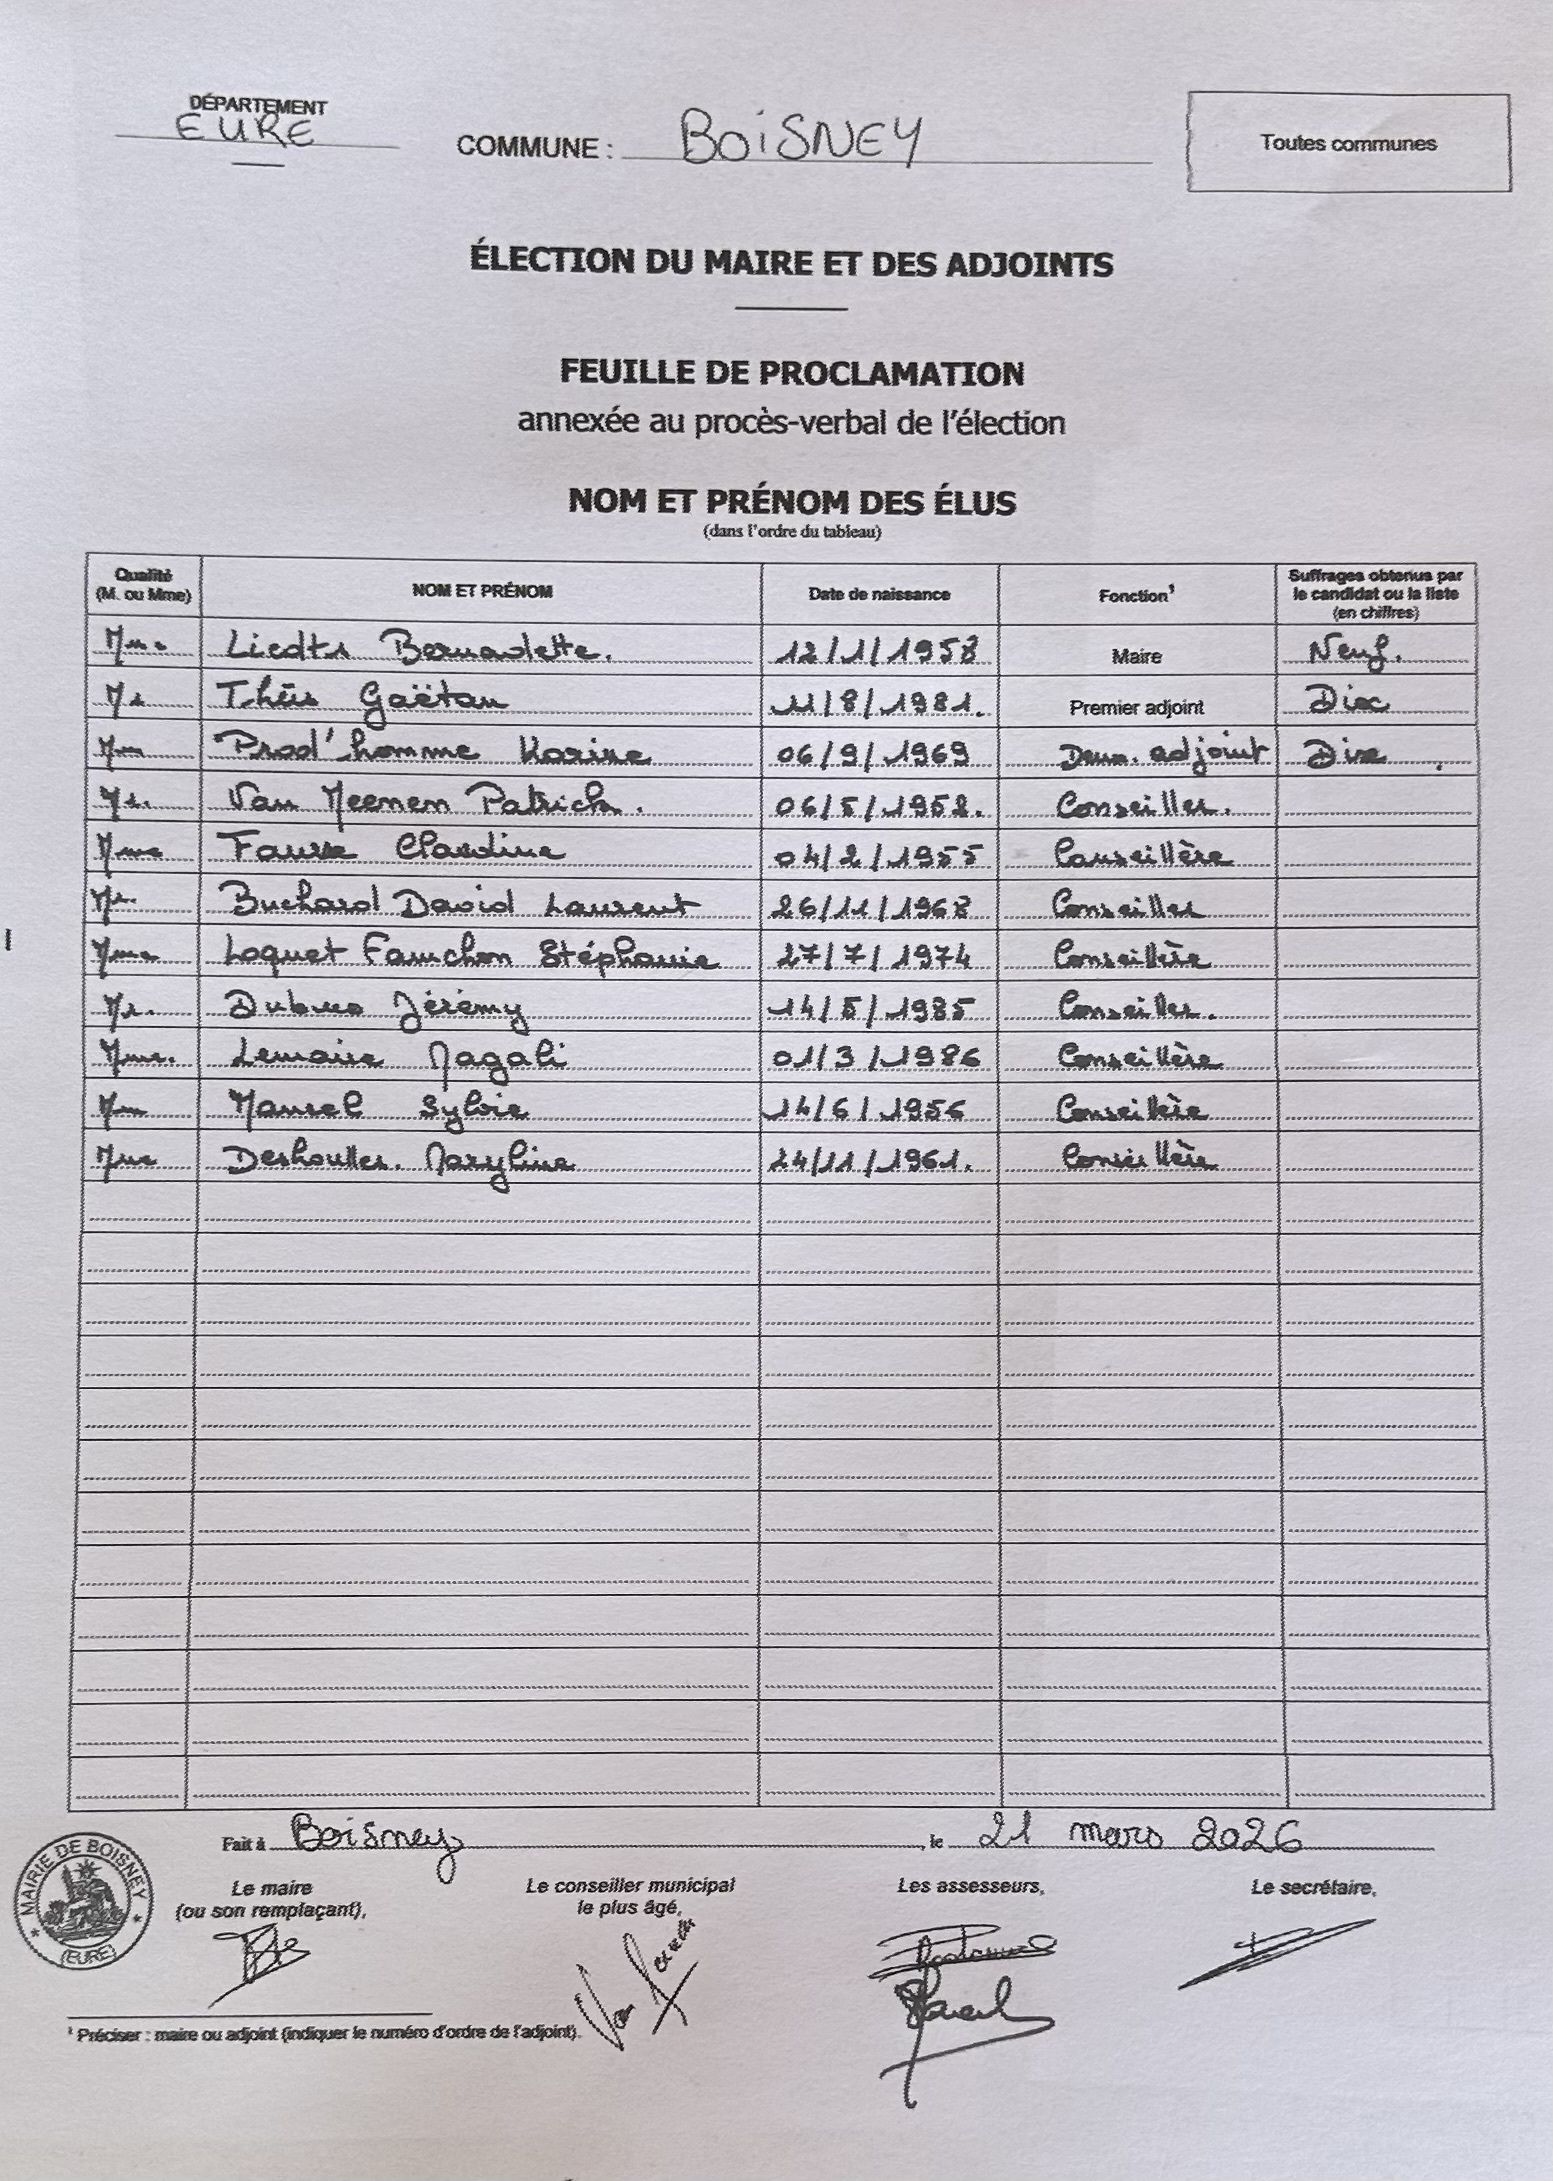 DÉPARTEMENT
EURE
COMMUNE : BOISNEY
Toutes communes
ÉLECTION DU MAIRE ET DES ADJOINTS
FEUILLE DE PROCLAMATION
annexée au procès-verbal de l'élection
NOM ET PRÉNOM DES ÉLUS
(dans l'ordre du tableau)
Qualité (M. ou Mme) NOM ET PRÉNOM Date de naissance Fonction¹ Suffrages obtenus par le candidat ou la liste (en chiffres)
Mme Liedts Bernadette. 12/1/1958 Maire Neuf.
Mr Gaëtan 11/8/1981. Premier adjoint Dix
Mme Prod'homme Karine 06/9/1969 Deux. adjoint Dix
Mr. Van Meenen Patrick. 06/5/1952. Conseiller.
Mme Claudine 04/2/1955 Conseillère
Mr. Buchard David Laurent 26/11/1968 Conseiller
Mme Loquet Fauchon Stéphanie 27/7/1974 Conseillère
Mr. Jérémy 14/5/1985 Conseiller.
Mme. Lemaire Magali 01/3/1986 Conseillère
Mme Mansel Sylvie 14/6/1956 Conseillère
Mme Maryline 24/11/1961. Conseillère
Fait à Boisney, le 21 mars 2026
MAIRIE DE BOISNEY
(EURE)
Le maire (ou son remplaçant), Le conseiller municipal le plus âgé, Les assesseurs, Le secrétaire,
¹ Préciser : maire ou adjoint (indiquer le numéro d'ordre de l'adjoint).